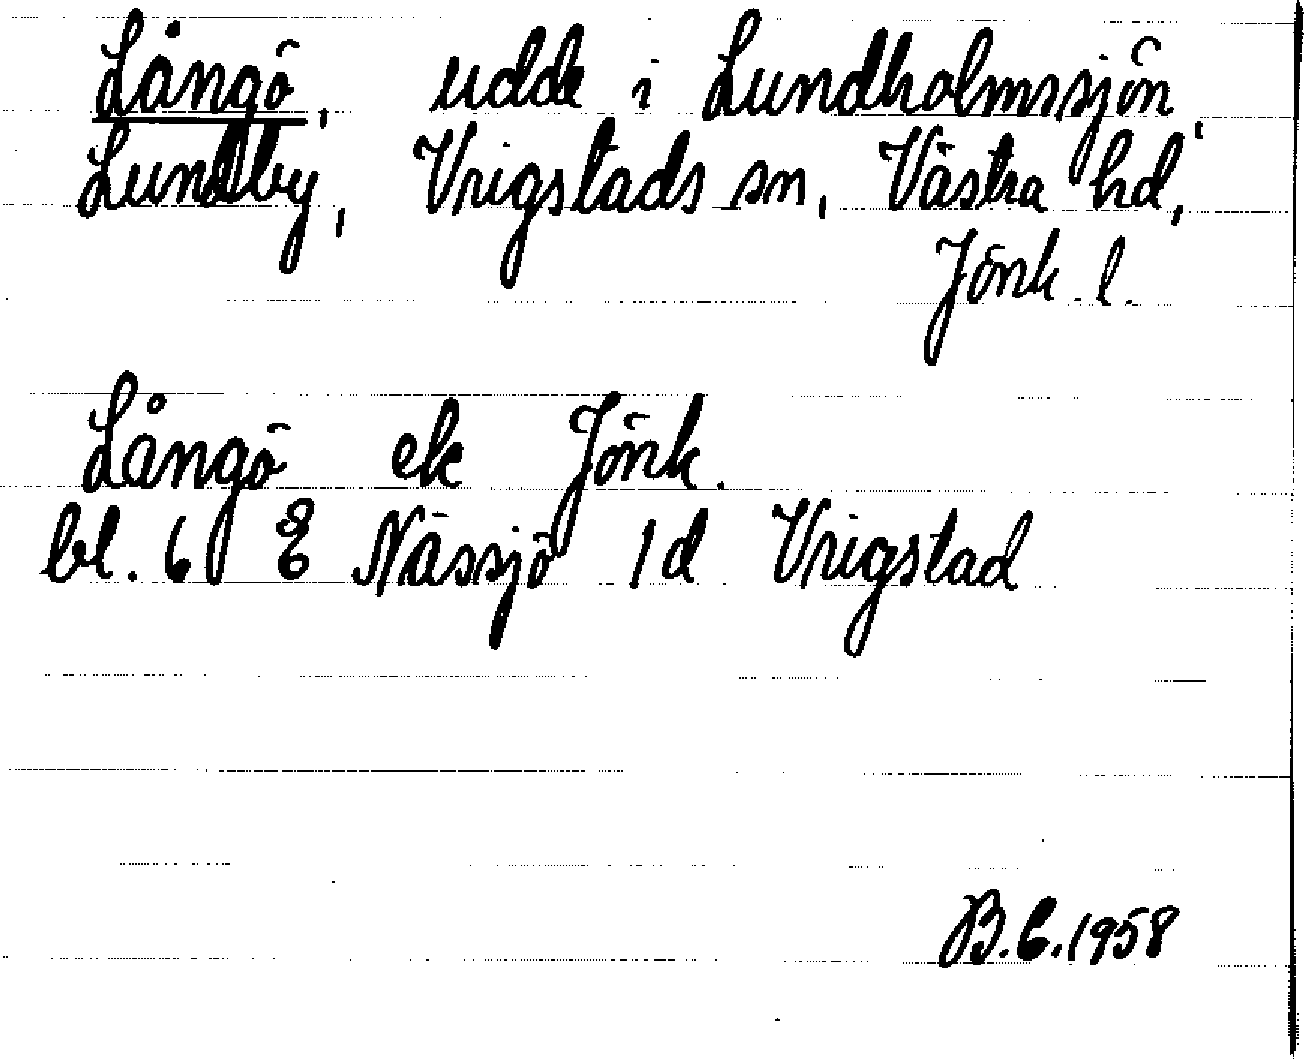 Långö, udde i Lundholmssjön,
Lundby, Vrigstads sn, Västra hd,
Jönk. l.
Långö ek Jönk.
bl. 6 E Nässjö 1d Vrigstad
B.C.1958